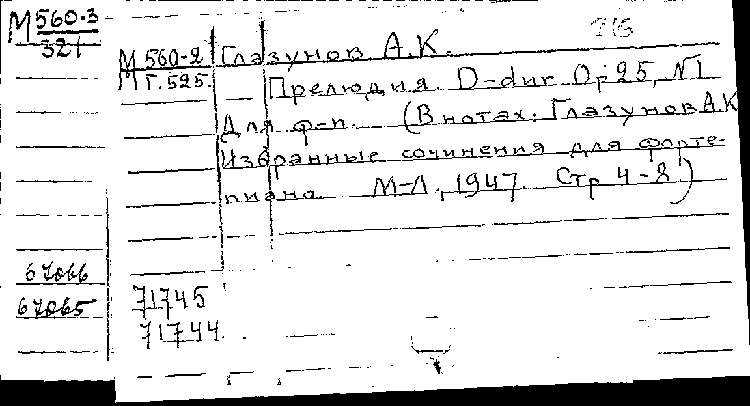 М560-3
321
М560-2 Глазунов А.К.
М Г.525.
Прелюдия D-dur Op 25, N1
Для ф-п. (В нотах: Глазунов А.К
Избранные сочинения для форте-
пиано. М-Л., 1947. Стр 4-8)
67066
67065
71745
71744